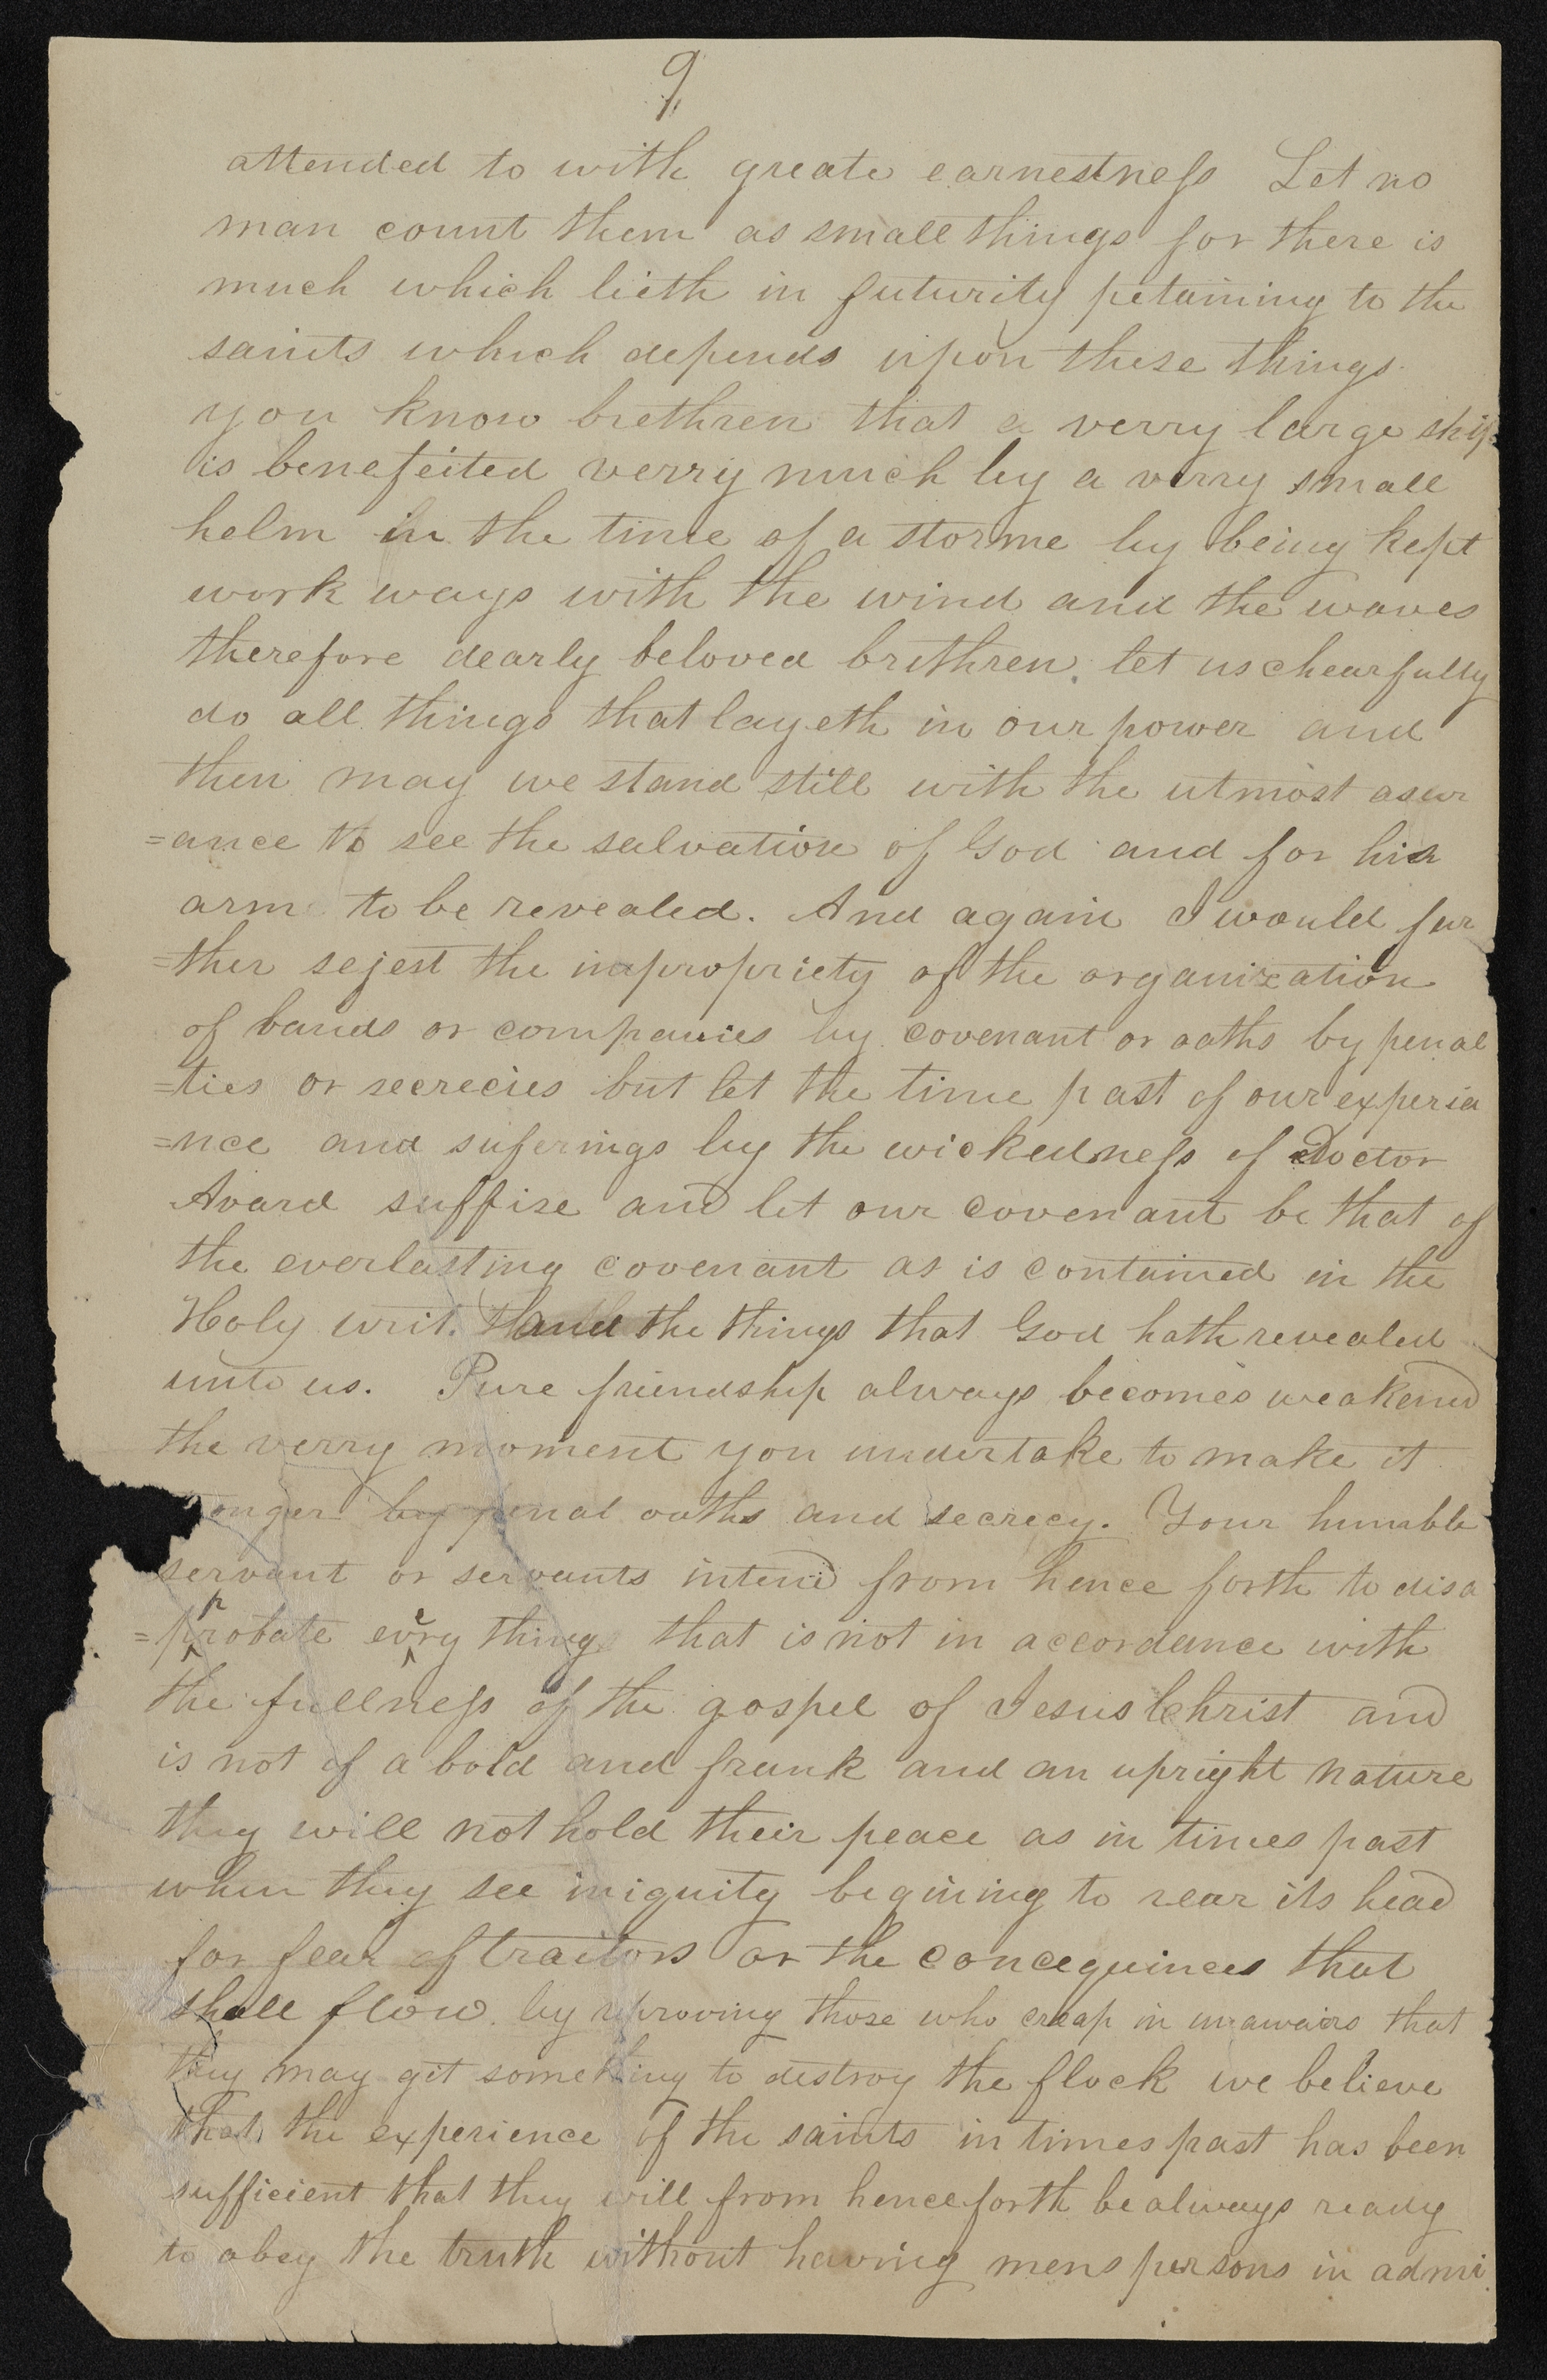 9
attended to with greate earnestness Let no
man count them as small things for there is
much which lieth in futurity petaining to the
saints which depends upon these things.
you know brethren that a verry large ship
is benefeited verry much by a verry small
helm in the time of a storme by being kept
work ways with the wind and the waves
therefore dearly beloved brethren. let us chearfully
do all things that layeth in our power and
then may we stand still with the utmost asur
=ance to see the salvation of God and for his
arm to be revealed. And again I would fur
=ther sejest the impropriety of the organization
of bands or companies by covenant or oaths by penal
=ties or secrecies but let the time past of our experia
=nce and suferings by the wickedness of Doctor
Avard suffise and let our covenant be that of
the everlasting covenant as is contained in the
Holy writ. and the things that God hath revealed
unto us. Pure friendship always becomes weakened
the verry moment you undertake to make it
onger by penal oaths and secrecy. Your humble
servant or servants intend from hence forth to disa
=pprobate every thing that is not in accordance with
the fullness of the gospel of Jesus Christ and
is not of a bold and frank and an upright nature
they will not hold their peace as in times past
when they see iniquity begining to rear its head
for fear of traitors or the concequinces that
shall flow by reproving those who creap in unawairs that
they may git something to destroy the flock we believe
that the experience of the saints in times past has been
sufficient that they will from henceforth be always ready
to obey the truth without having mens persons in admi